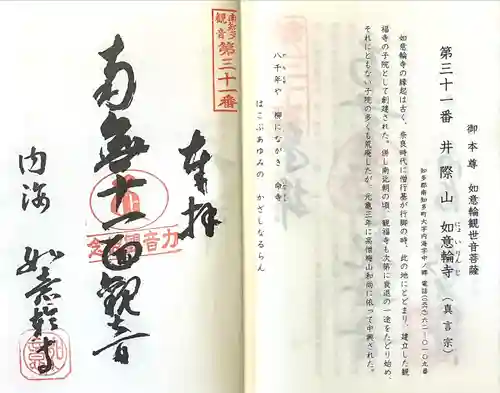 御本尊 如意輪観世音菩薩
第三十一番 井際山 如意輪寺（真言宗）
にょいりんじ
知多郡南知多町大字内海字中ノ郷 電話
如意輪寺の縁起は古く、奈良時代に僧行基が行脚の時、此の地にとどまり、建立した観
福寺の子院として創建された。併し南北朝の頃、観福寺も次第に衰退の一途をたどり始め、
それにともない子院の多くも荒庵したが、元亀三年に高僧梅山和尚に依って中興された。
八千年や 柳にながき 命寺
はこぶあゆみの かざしなるらん
南知多
観音
第三十一番
奉拝
南無十一面観音
内海 如意輪寺